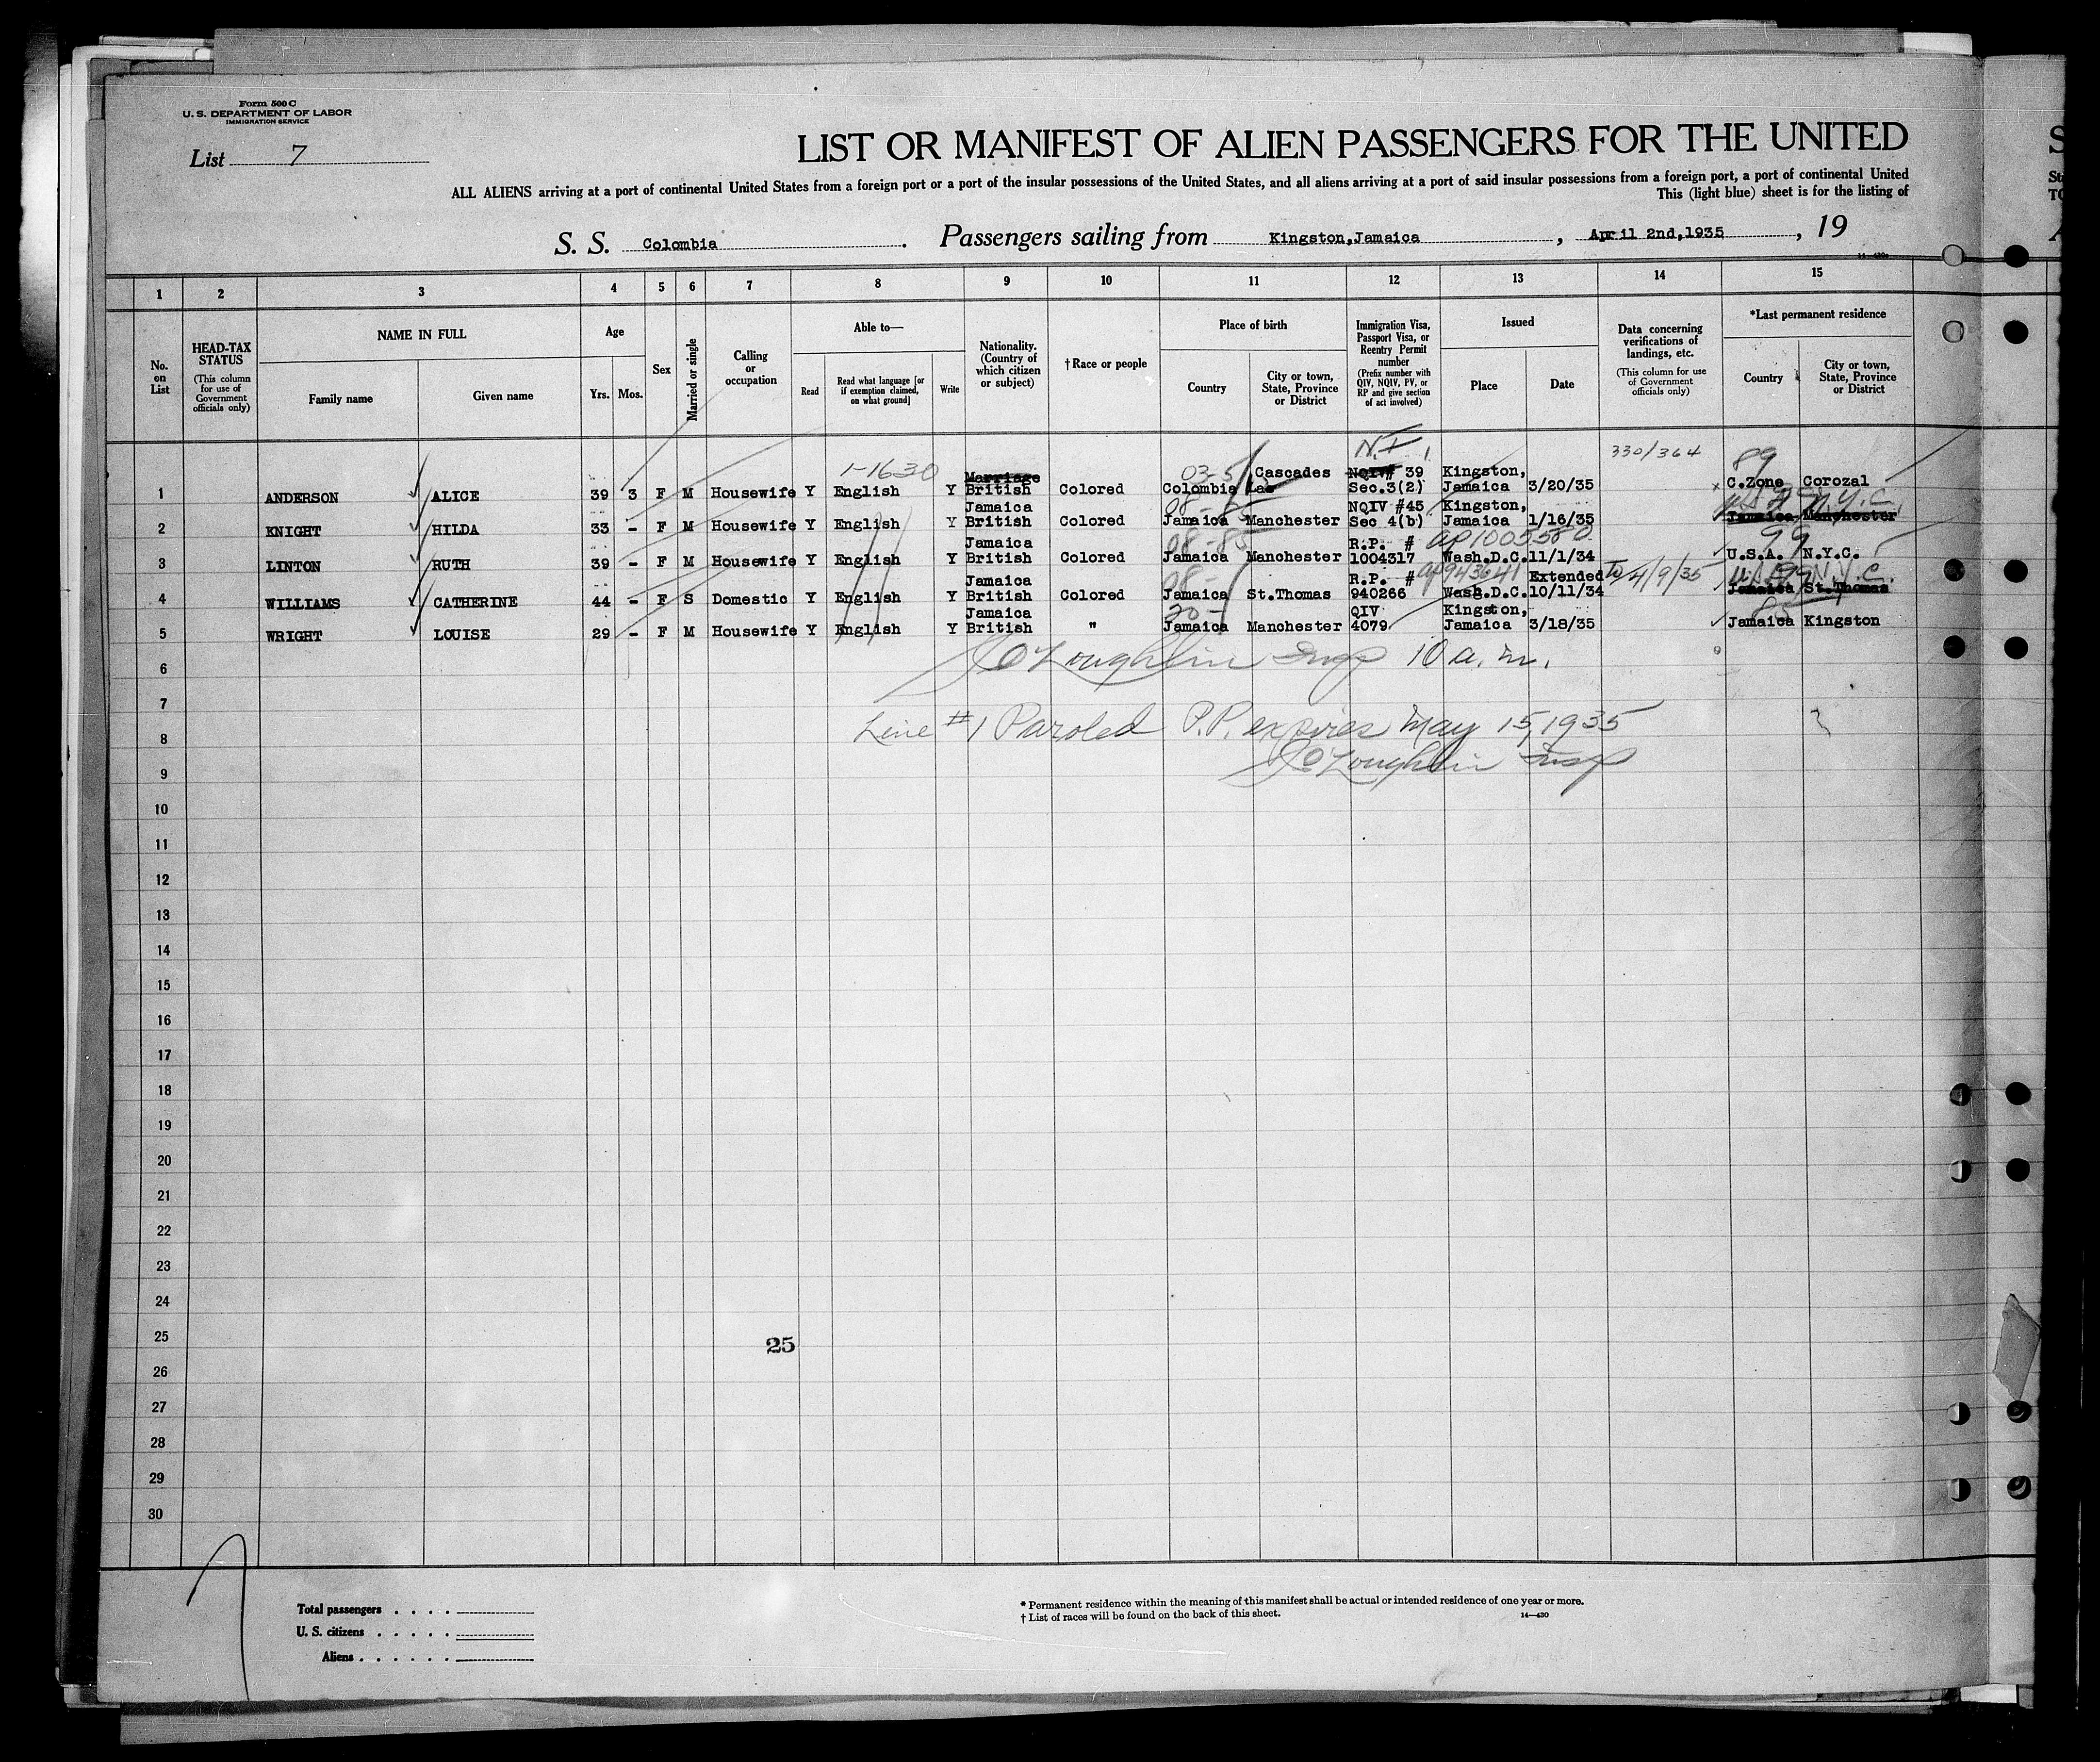 Form 500 C
U. S. DEPARTMENT OF LABOR
IMMIGRATION SERVICE
List 7
LIST OR MANIFEST OF ALIEN PASSENGERS FOR THE UNITED
ALL ALIENS arriving at a port of continental United States from a foreign port or a port of the insular possessions of the United States, and all aliens arriving at a port of said insular possessions from a foreign port, a port of continental United
This (light blue) sheet is for the listing of
S. S. Colombia. Passengers sailing from Kingston,Jamaica, April 2nd,1935, 19
1 2 3 4 5 6 7 8 9 10 11 12 13 14 15
No. on List
HEAD-TAX STATUS (This column for use of Government officials only)
NAME IN FULL
Family name
Given name
Age
Yrs. Mos.
Sex
Married or single
Calling or occupation
Able to—
Read
Read what language [or if exemption claimed, on what ground]
Write
Nationality. (Country of which citizen or subject)
†Race or people
Place of birth
Country
City or town, State, Province or District
Immigration Visa, Passport Visa, or Reentry Permit number (Prefix number with QIV, NQIV, PV, or RP and give section of act involved)
Issued
Place
Date
Data concerning verifications of landings, etc. (This column for use of Government officials only)
*Last permanent residence
Country
City or town, State, Province or District
N.I. 330/364 89
1-1630 Marriage 03-5 Cascades NQIV# 39 Kingston,
1 ANDERSON ALICE 39 3 F M Housewife Y English Y British Colored Colombia Las Sec.3(2) Jamaica 3/20/35 C.Zone Corozal
Jamaica NQIV #45 Kingston, N.Y.C.
2 KNIGHT HILDA 33 - F M Housewife Y English Y British Colored Jamaica Manchester Sec 4(b) Jamaica 1/16/35 Jamaica Manchester
Jamaica 08-85 R.P. # 99
3 LINTON RUTH 39 - F M Housewife Y English Y British Colored Jamaica Manchester 1004317 Wash.D.C. 11/1/34 U.S.A. N.Y.C.
Jamaica 08- R.P. # Extended to 4/9/35 N.Y.C.
4 WILLIAMS CATHERINE 44 - F S Domestic Y English Y British Colored Jamaica St.Thomas 940266 Wash.D.C. 10/11/34 Jamaica St.Thomas
Jamaica 20- QIV Kingston, 85
5 WRIGHT LOUISE 29 - F M Housewife Y English Y British " Jamaica Manchester 4079 Jamaica 3/18/35 Jamaica Kingston
6 J O'Loughlin Insp 10 a.m.
7
8 Line #1 Paroled P.P. expires May 15, 1935
9 J O'Loughlin Insp
10
11
12
13
14
15
16
17
18
19
20
21
22
23
24
25 25
26
27
28
29
30
7
Total passengers
U. S. citizens
Aliens
* Permanent residence within the meaning of this manifest shall be actual or intended residence of one year or more.
† List of races will be found on the back of this sheet. 14—430